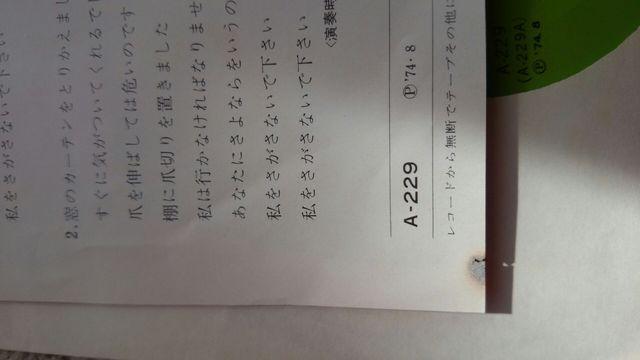 私をさがさないで下さい
2.窓のカーテンをとりかえまし
すぐに気がついてくれるで
爪を伸ばしては危いのです
棚に爪切りを置きました
私は行かなければなりませ
あなたにさよならをいうの
私をさがさないで下さい
私をさがさないで下さい
〈演奏時
A-229 Ⓟ'74・8
レコードから無断でテープその他に
A-229
(A-229A)
Ⓟ'74.8